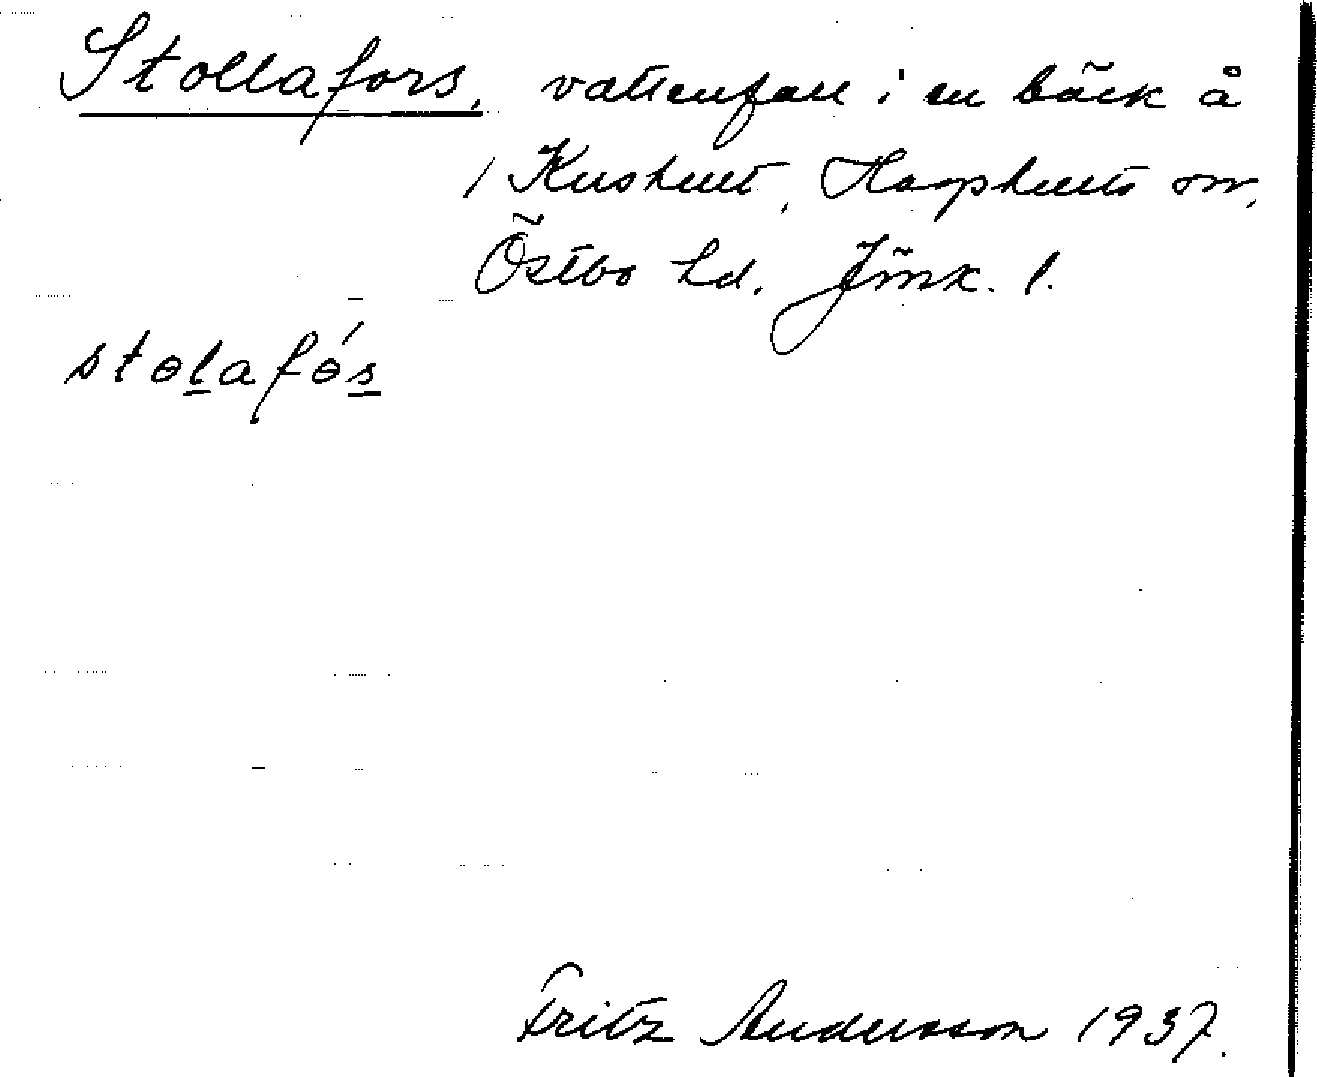 Stollafors, vattenfall i en bäck å
/ Kushult, Hagshults sn,
Östbo hd. Jönk. l.
stɵl̲afɵ́s̲
Fritz Andersson 1937.